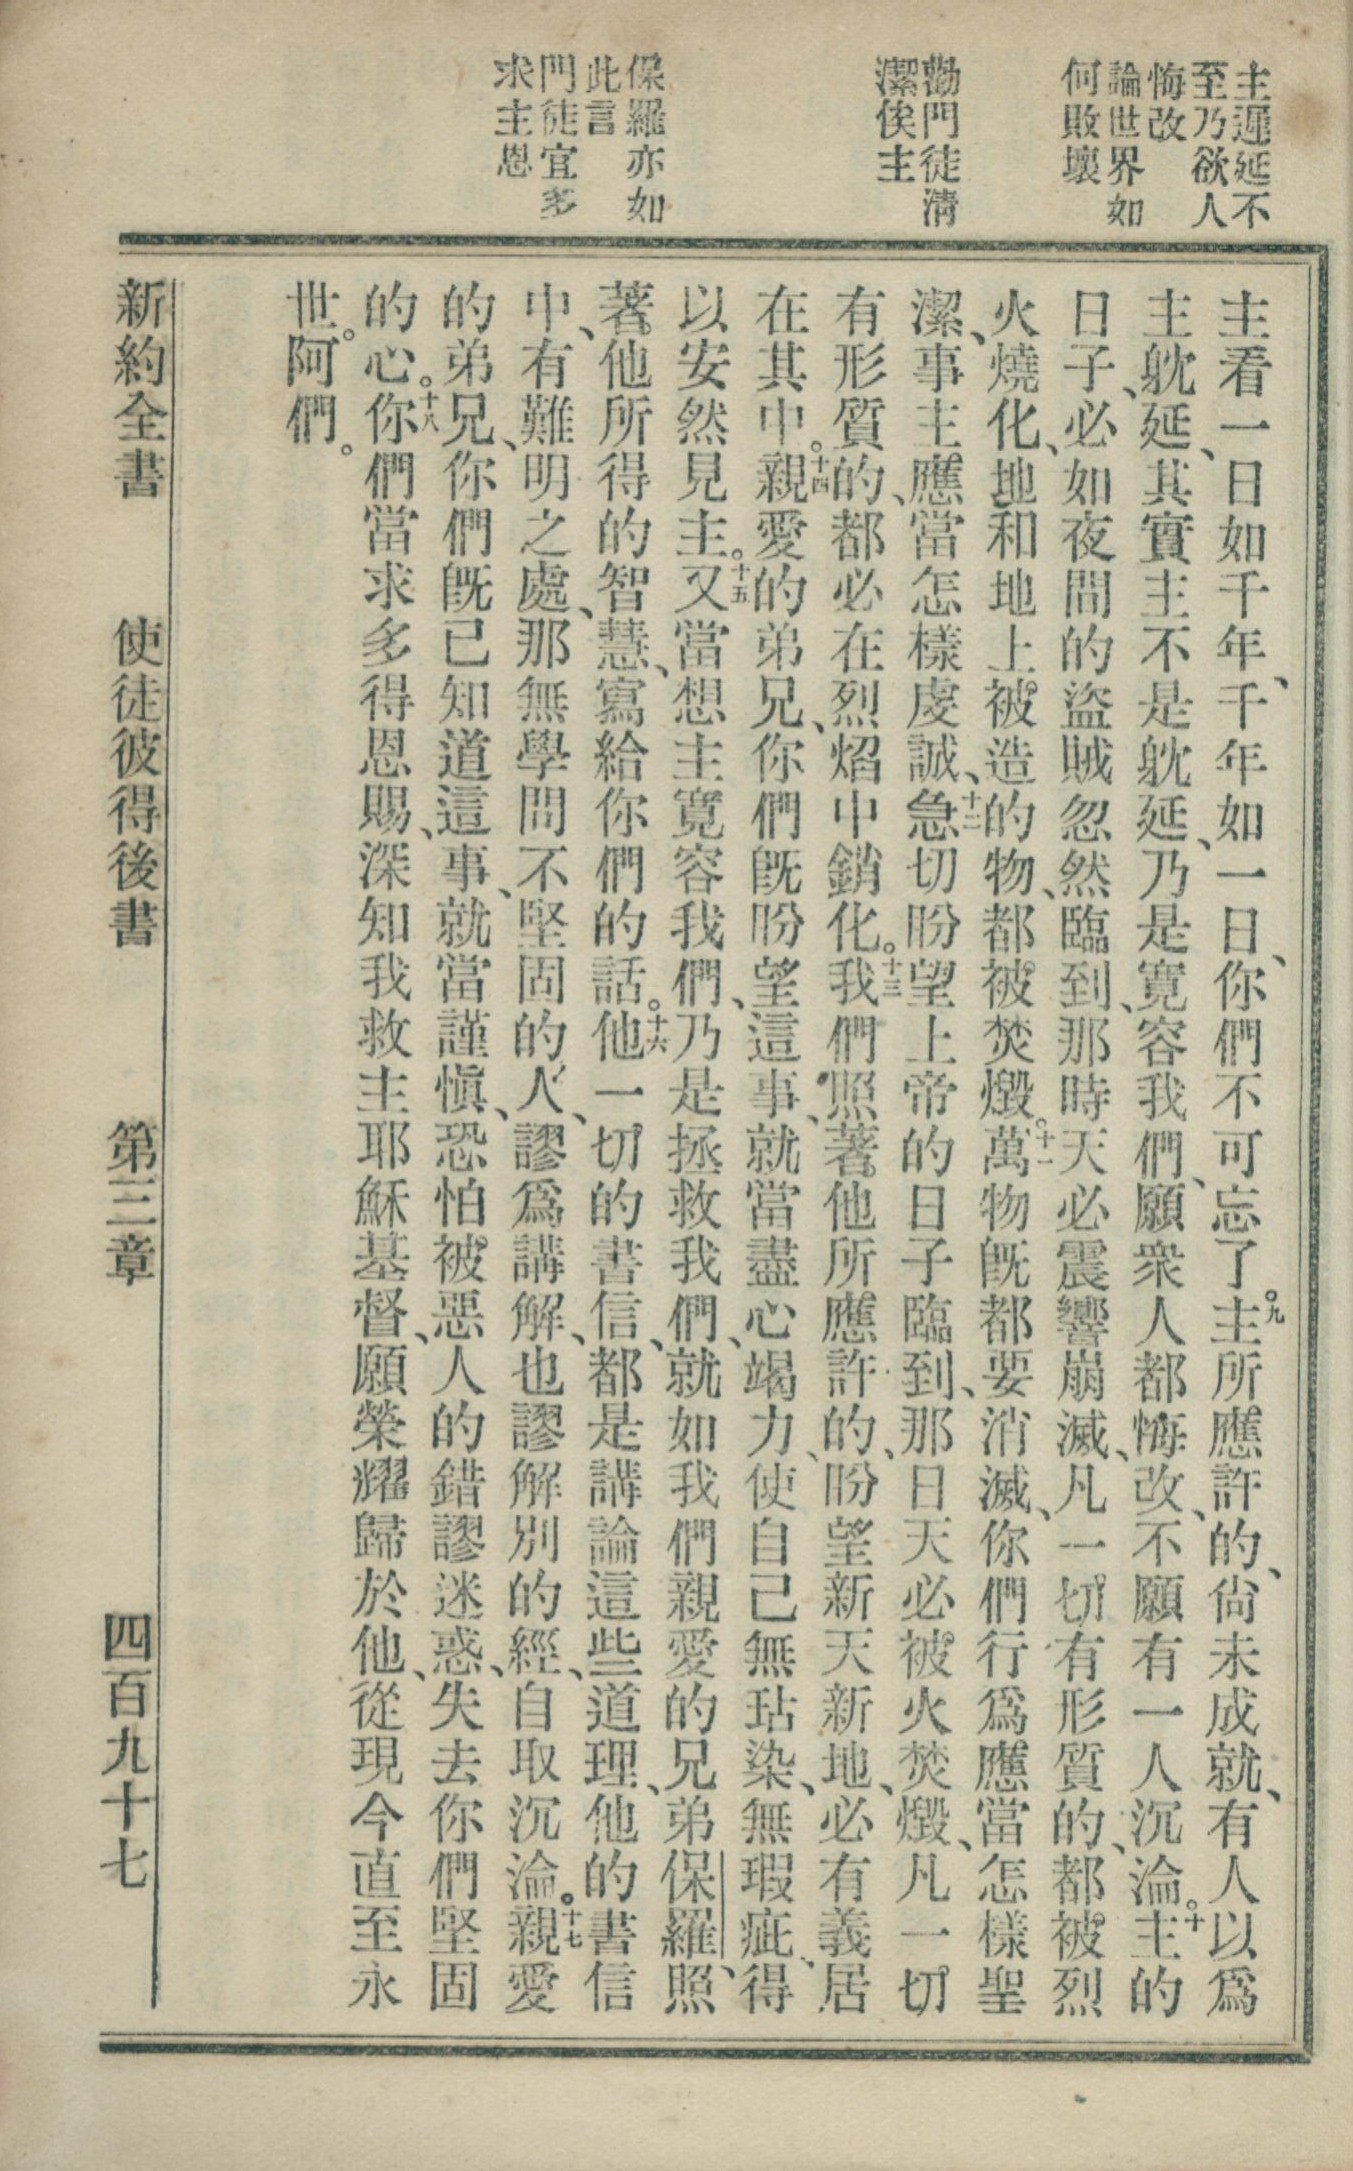 主遲延不
至乃欲人
悔改
論世界如
何敗壞
勸門徒清
潔俟主
保羅亦如
此言
門徒宜多
求主恩
主看一日如千年、千年如一日、你們不可忘了。九主所應許的、尙未成就、有人以爲
主躭延、其實主不是躭延、乃是寬容我們、願衆人都悔改、不願有一人沉淪。十主的
日子、必如夜間的盜賊忽然臨到、那時天必震響崩滅、凡一切有形質的、都被烈
火燒化、地和地上被造的物、都被焚燬。十一萬物旣都要消滅、你們行爲應當怎樣聖
潔、事主應當怎樣虔誠、十二急切盼望上帝的日子臨到、那日天必被火焚燬、凡一切
有形質的、都必在烈焰中銷化。十三我們照著他所應許的、盼望新天新地、必有義居
在其中。十四親愛的弟兄、你們旣盼望這事、就當盡心竭力、使自己無玷染、無瑕疵、得
以安然見主。十五又當想主寬容我們、乃是拯救我們、就如我們親愛的兄弟保羅、照
著他所得的智慧、寫給你們的話。十六他一切的書信、都是講論這些道理、他的書信
中、有難明之處、那無學問不堅固的人、謬爲講解、也謬解別的經、自取沉淪。十七親愛
的弟兄、你們旣已知道這事、就當謹愼、恐怕被惡人的錯謬迷惑、失去你們堅固
的心。十八你們當求多得恩賜、深知我救主耶穌基督、願榮耀歸於他、從現今直至永
世。阿們。
新約全書　使徒彼得後書　第三章　四百九十七